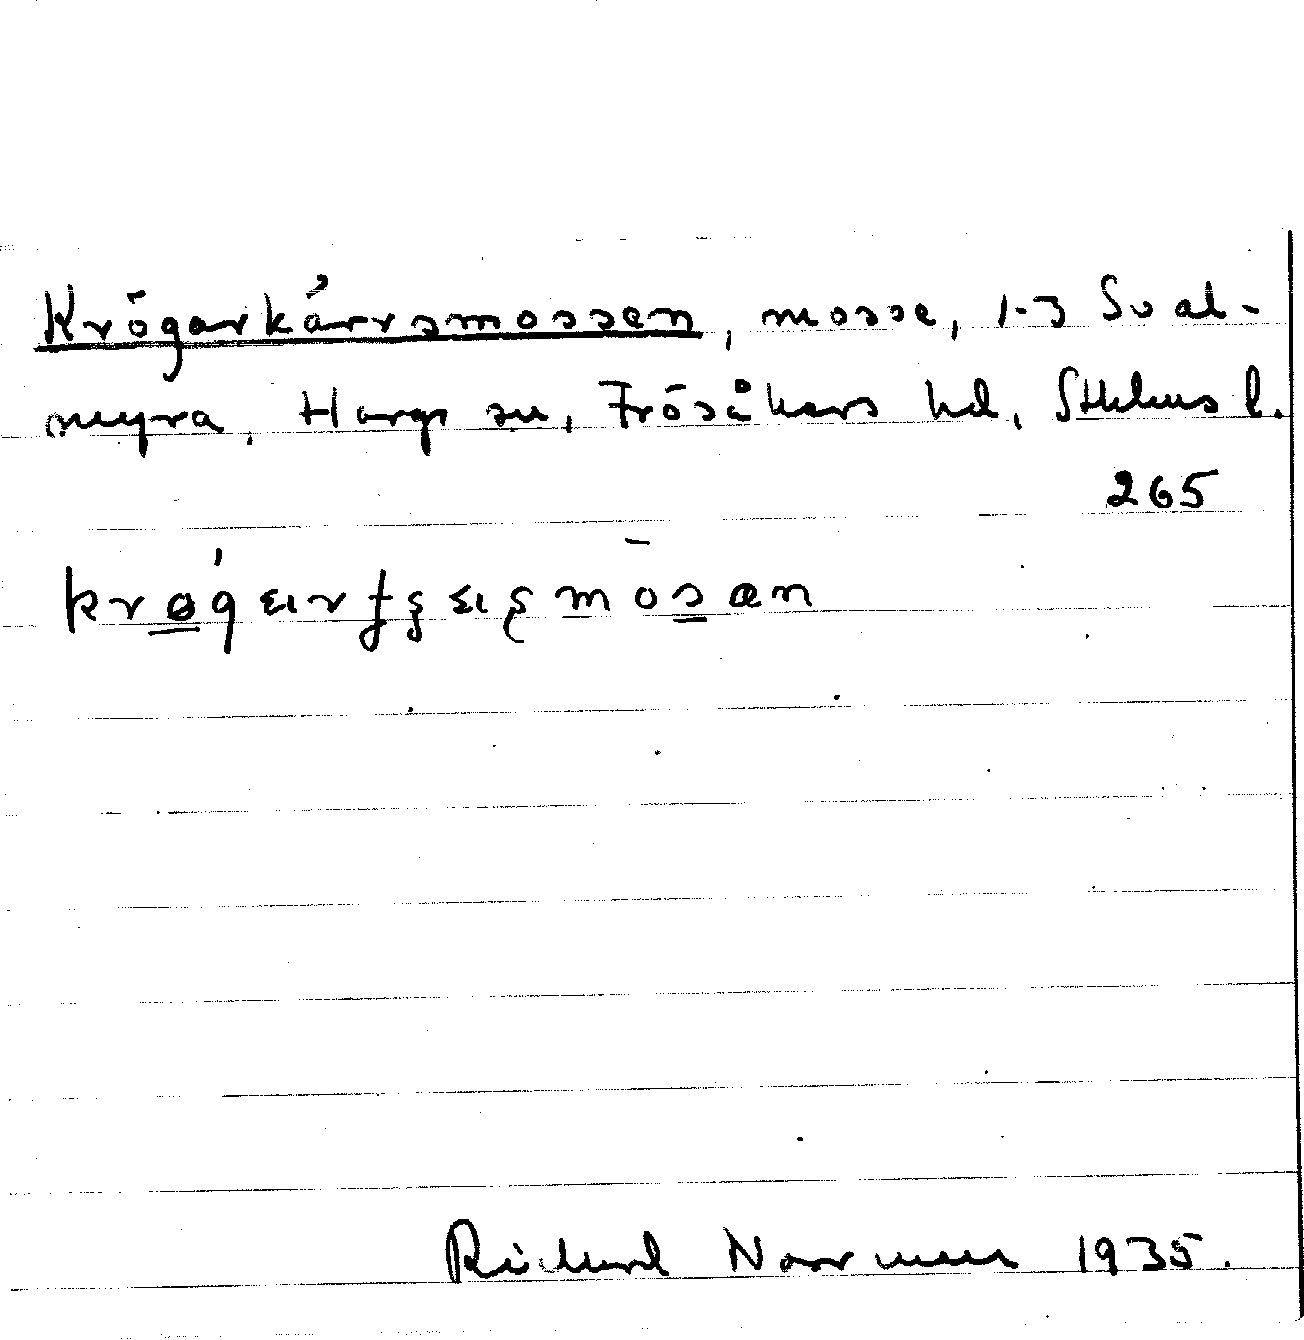 Krögarkärrsmossen, mosse, 1-3 Sval-
myra, Hargs sn, Frösåkers hd, Sthlms l.
265
Richard Norrman 1935.